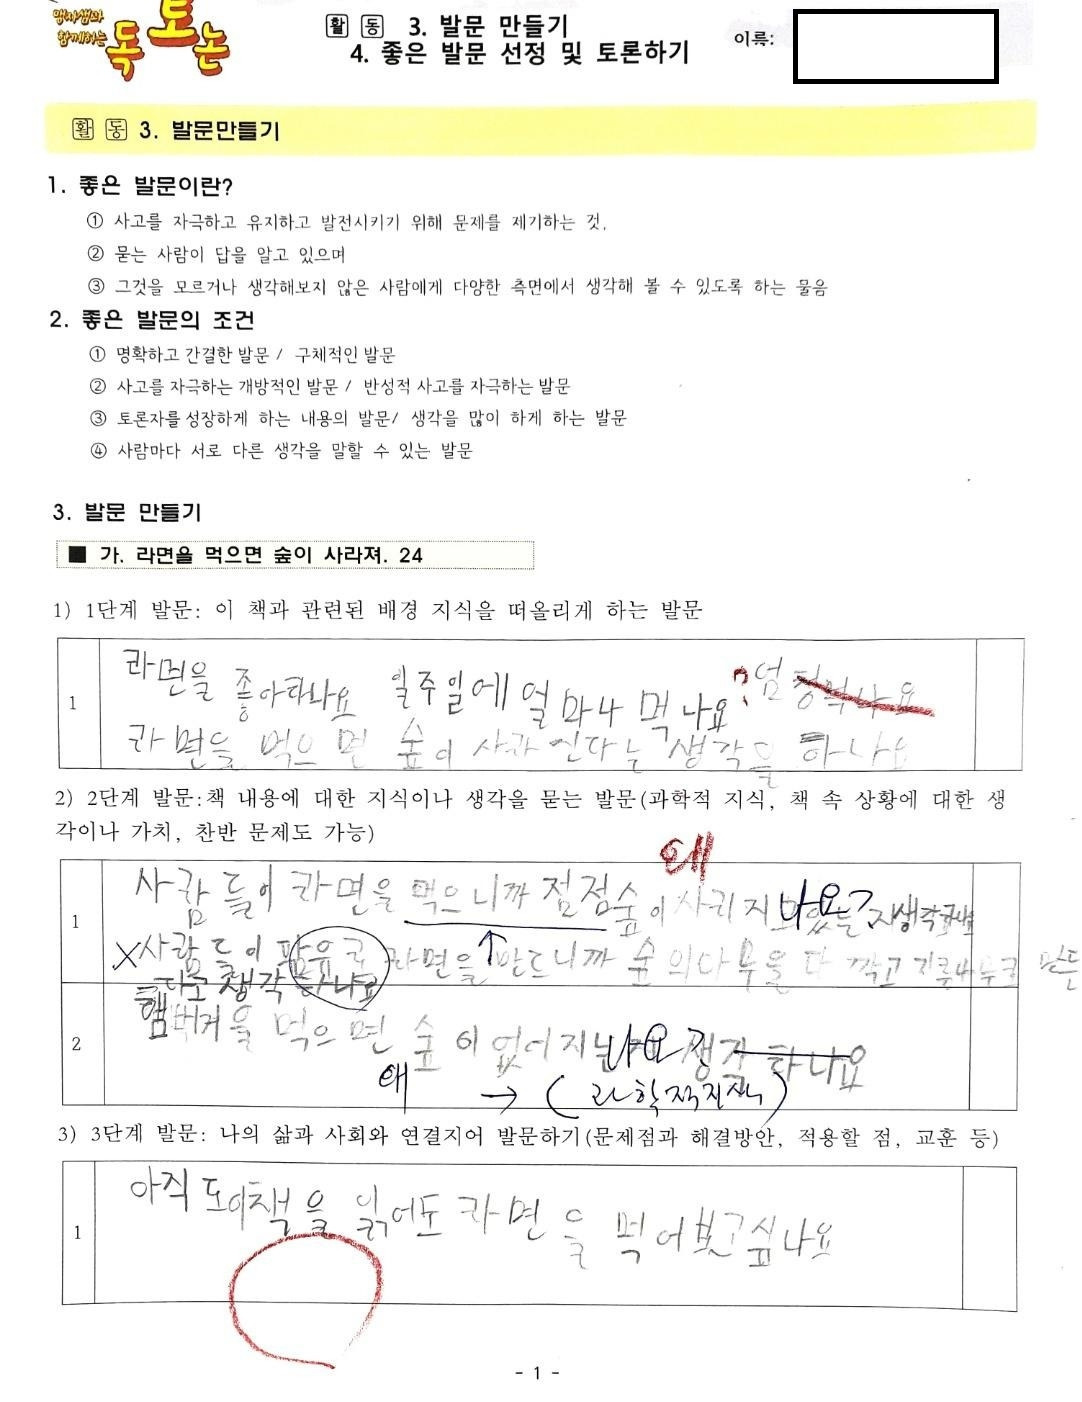 맹자샘과
함께하는
독토논
활동 3. 발문 만들기
4. 좋은 발문 선정 및 토론하기
이름:
활동 3. 발문만들기
1. 좋은 발문이란?
① 사고를 자극하고 유지하고 발전시키기 위해 문제를 제기하는 것,
② 묻는 사람이 답을 알고 있으며
③ 그것을 모르거나 생각해보지 않은 사람에게 다양한 측면에서 생각해 볼 수 있도록 하는 물음
2. 좋은 발문의 조건
① 명확하고 간결한 발문 / 구체적인 발문
② 사고를 자극하는 개방적인 발문 / 반성적 사고를 자극하는 발문
③ 토론자를 성장하게 하는 내용의 발문/ 생각을 많이 하게 하는 발문
④ 사람마다 서로 다른 생각을 말할 수 있는 발문
3. 발문 만들기
■ 가. 라면을 먹으면 숲이 사라져. 24
1) 1단계 발문: 이 책과 관련된 배경 지식을 떠올리게 하는 발문
1
라면을 좋아하나요 일주일에 얼마나 먹나요?
라면을 먹으면 숲이 사라진다는 생각을 하나요
2) 2단계 발문:책 내용에 대한 지식이나 생각을 묻는 발문(과학적 지식, 책 속 상황에 대한 생
각이나 가치, 찬반 문제도 가능)
왜
1
사람들이 라면을 먹으니까 점점숲이 사라지나요?
X사람들이 팜유로 라면을 만드니까 숲의나무을 다 깍고 기름나무로
생각하나요
2
햄버거을 먹으면 숲이 없어지나요? 생각하나요
왜 → (과학적지식)
3) 3단계 발문: 나의 삶과 사회와 연결지어 발문하기(문제점과 해결방안, 적용할 점, 교훈 등)
1
아직도이책을 읽어도 라면을 먹어보고싶나요
- 1 -